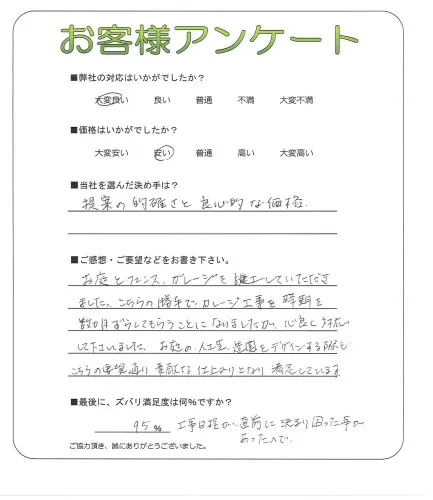 お客様アンケート
■弊社の対応はいかがでしたか？
大変良い 良い 普通 不満 大変不満
■価格はいかがでしたか？
大変安い 安い 普通 高い 大変高い
■当社を選んだ決め手は？
提案の的確さと良心的な価格。
■ご感想・ご要望などをお書き下さい。
お庭とフェンス、ガレージを施工していただき
ました。こちらの勝手で、ガレージ工事を時期を
数か月ずらしてもらうことになりましたが、心良く対応
して下さいました。お庭の人工芝、造園をデザインする際も
こちらの要望通り素敵な仕上がりとなり満足しています
■最後に、ズバリ満足度は何％ですか？
95％ 工事日程が直前に決まり困った事が
あったので。
ご協力頂き、誠にありがとうございました。